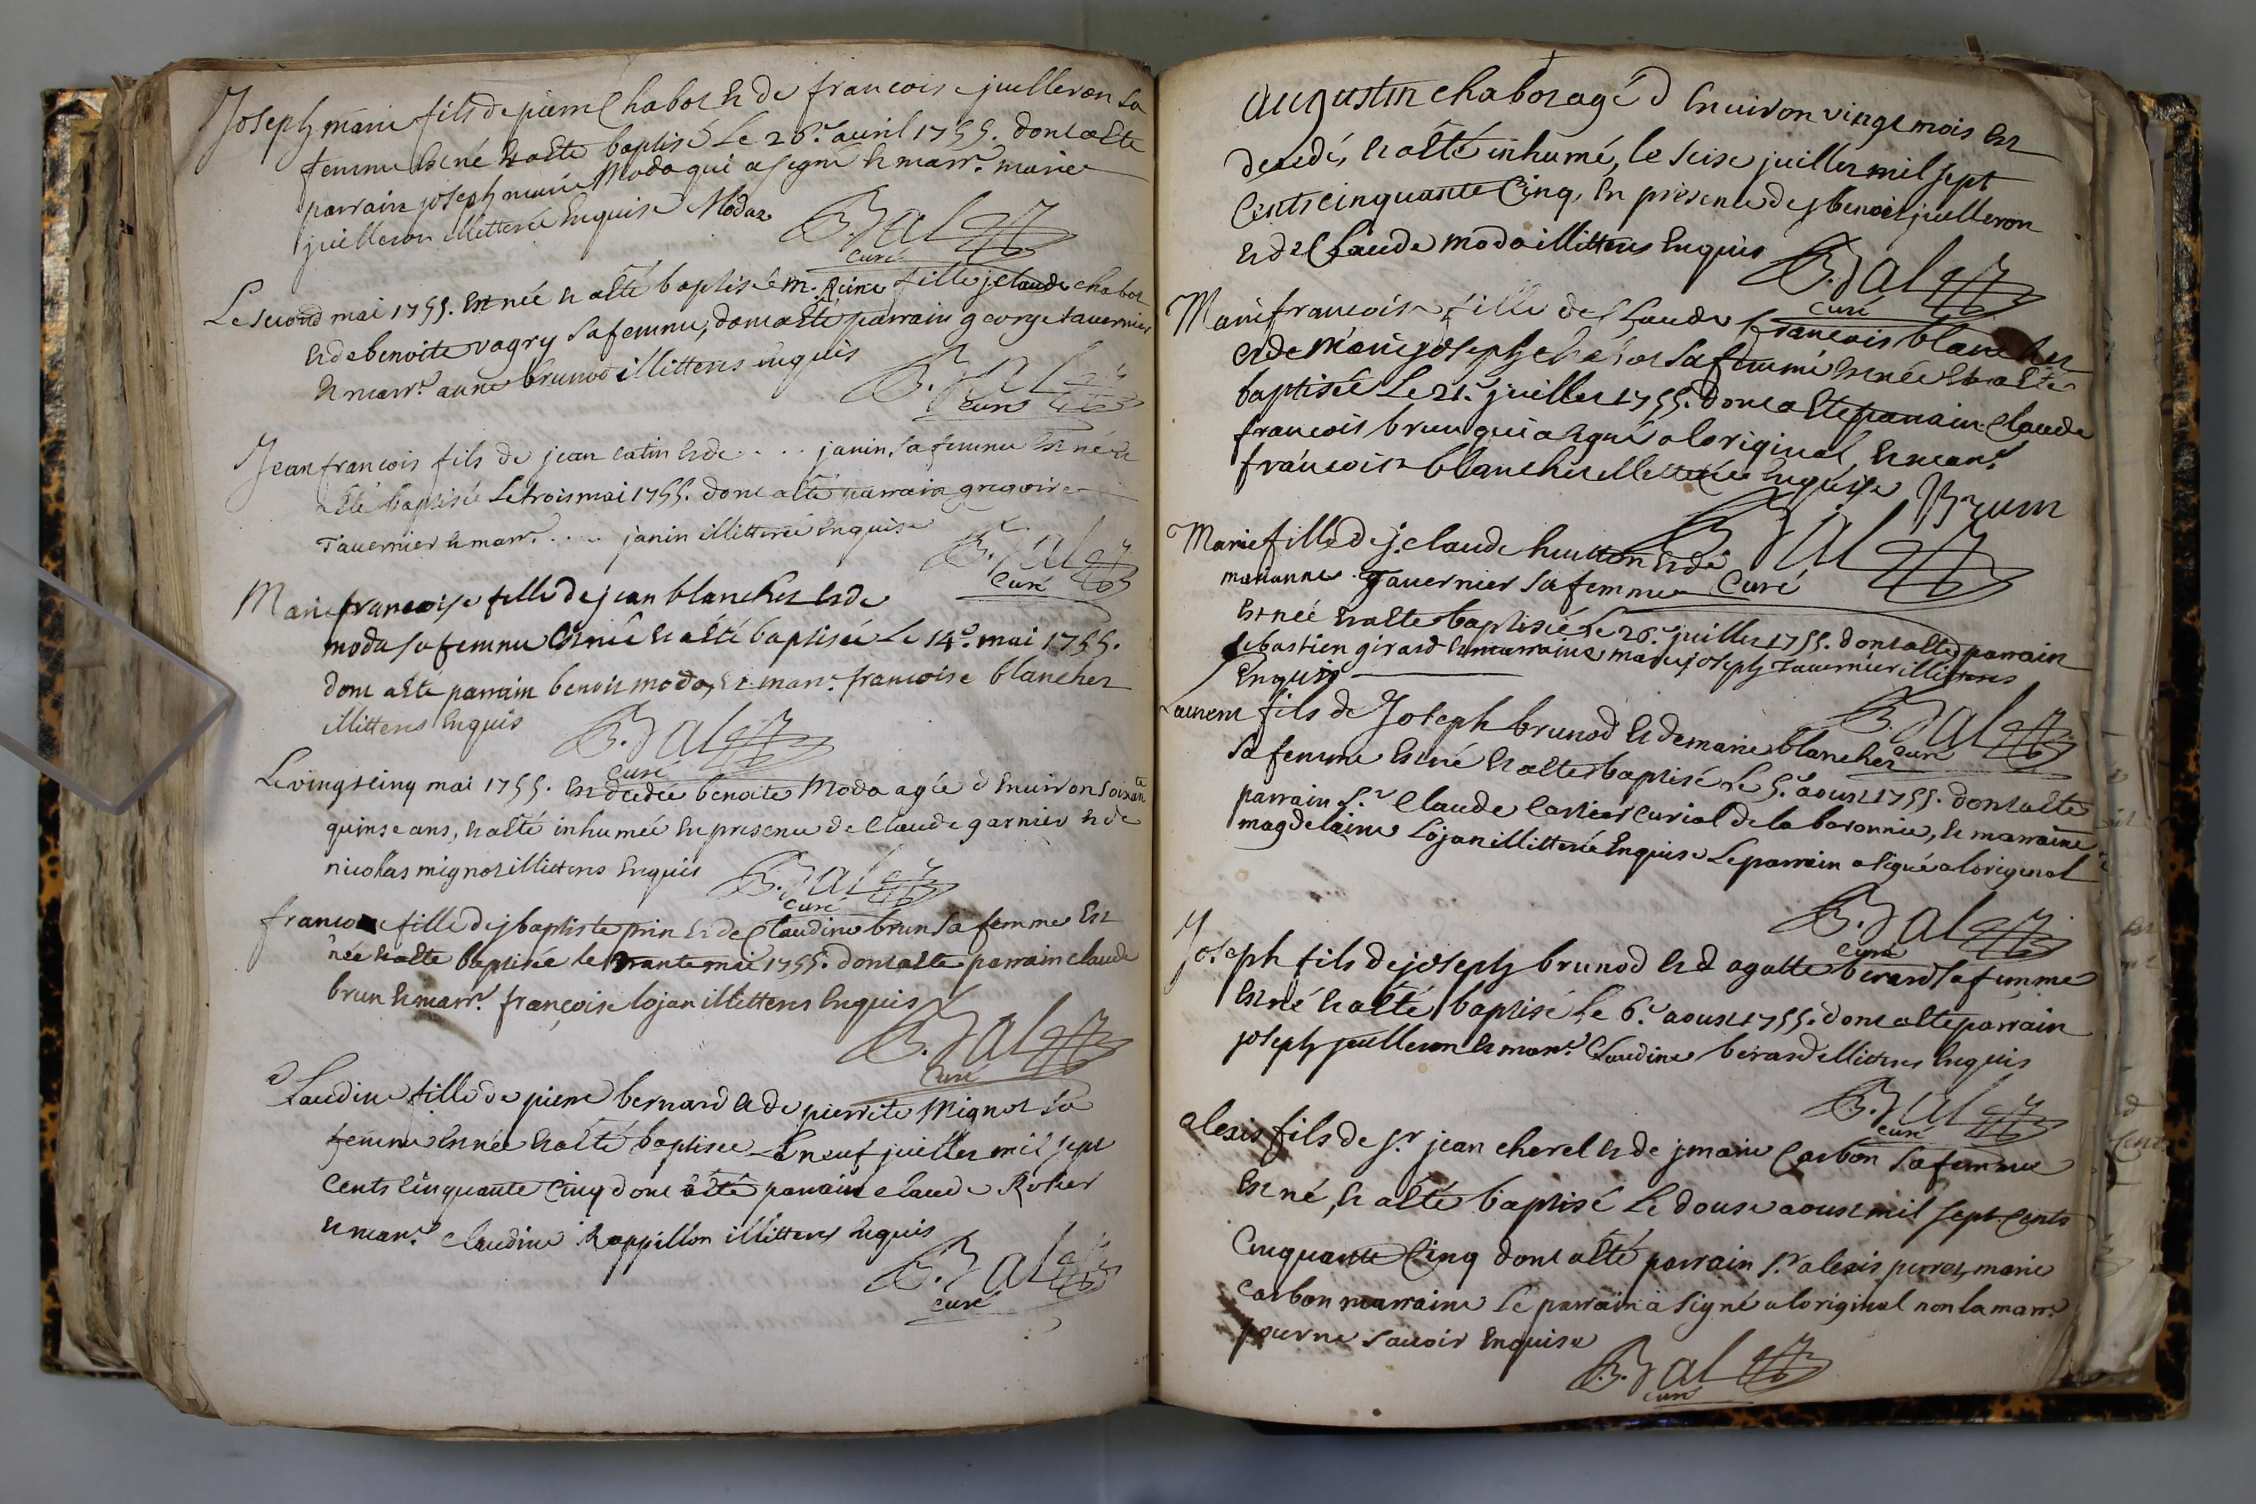 Joseph marie fils de pierre Chabot et de francoise juilleron sa
femme est né et a esté baptisé le 26.e avril 1755. dont a esté
parrain joseph marie Moda qui a signé et marr.e marie
juilleron illitterée enquise Modaz
B. Jalez
curé
Le second mai 1755. est née et a esté baptisée m. Reine fille j. claude chabot
et de benoite vagry sa femme, dont a esté parrain george tavernier
et marr.e anne brunod illitteres enquis
B. Jalez
curé
Jean francois fils de jean catin et de . . . janin sa femme est né et a
esté baptisé le trois mai 1755. dont a esté parrain gregoire
Tavernier et marr.e . . . . janin illitterée enquise
B. Jalez
curé
Marie francoise fille de jean blanchet et de
moda sa femme est née et a esté baptisée le 14.e mai 1755.
dont a esté parrain benoit moda, et marr.e francoise blanchet
illitteres enquis
B. Jalez
curé
Le vingt cinq mai 1755. est decedée benoite Moda agée d environ soixante
quinse ans, et a esté inhumée en presence de Claude garnier et de
nicolas mignot illitteres enquis
B. Jalez
curé
fille de j baptiste prin et de Claudine brun sa femme est
née et a esté baptisée le trante mai 1755. dont a esté parrain claude
brun et marr.e françoise lojan illitteres enquis
B. Jalez
curé
Claudine fille de pierre bernard et de pierrete Mignot sa
femme est née et a esté baptisee le neuf juillet mil sept
cents cinquante cinq dont a été parrain claude Roher
et marr.e claudine Rappillon illitteres enquis
B. Jalez
curé
Augustin chabot agé d environ vingt mois est
decedé, et a esté inhumé, le seise juillet mil sept
cents cinquante cinq, en presence de j benoit juilleron
et de Claude moda illitteres enquis
B. Jalez
curé
Marie francoise fille de Claude francois blanchet
et de Marie joseph chabot sa femme est née et a esté
baptisée le 21.e juillet 1755. dont a esté parrain Claude
francois brun qui a signé a loriginal, et marr.e
francoise blanchet illitterée enquise Brun
B. Jalez
curé
Marie fille de j. claude hutton et de
marianne Tavernier sa femme
est née et a esté baptisée le 26.e juillet 1755. dont a esté parrain
sebastien girard et marraine marie joseph Tavernier illitteres
enquis
B. Jalez
curé
Laurent fils de Joseph brunod et de marie blanchet
sa femme est né et a esté baptisé le 5.e aoust 1755. dont a esté
parrain S.r Claude Carrier curial de la baronnie, et marraine
magdelaine Lojan illitterée enquise le parrain a signé a loriginal
B. Jalez
curé
Joseph fils de joseph brunod et d agatte berard sa femme
est né et a esté baptisé le 6.e aoust 1755. dont a esté parrain
joseph juilleron et marr.e Claudine berard illitteres enquis
B. Jalez
curé
alexis fils de s.r jean cherel et de j marie Carbon sa femme
est né, et a esté baptisé le douse aoust mil sept cents
cinquante cinq dont a esté parrain s.r alexis perret, marie
carbon marraine le parrain a signé a loriginal non la marr.e
pour ne savoir enquise
B. Jalez
curé